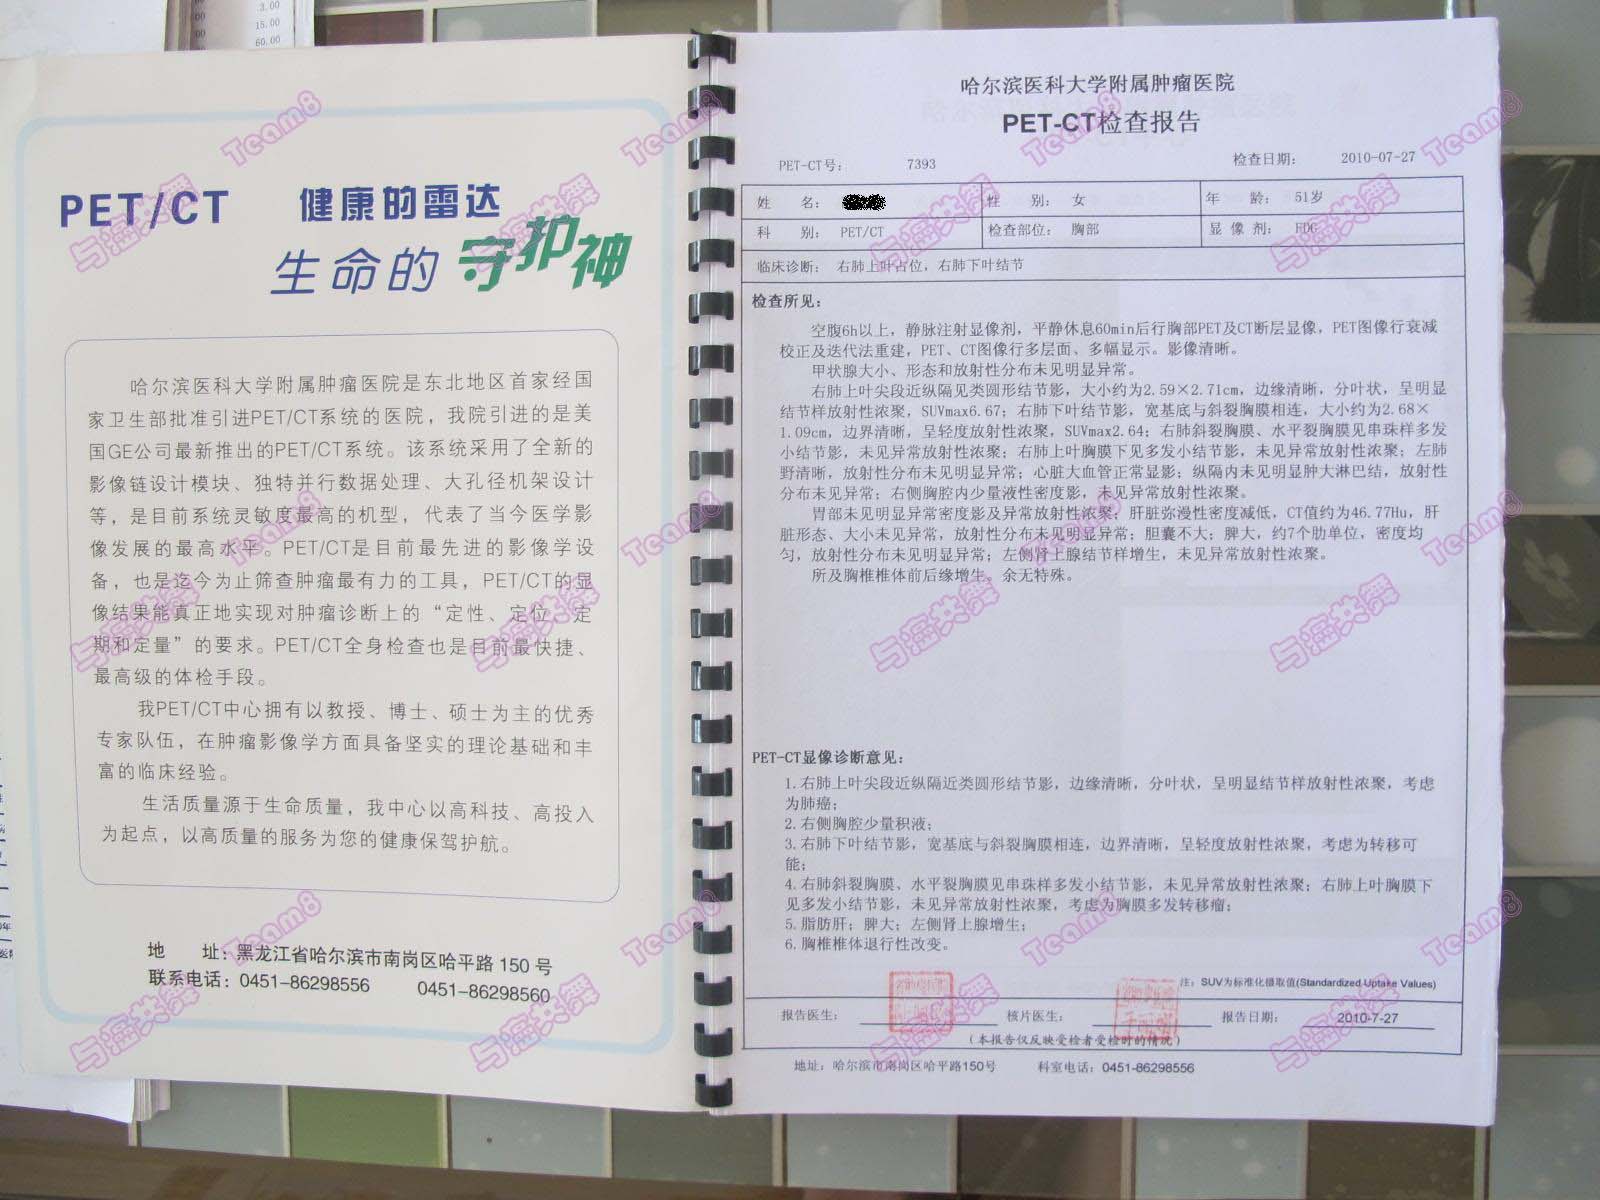 3.00
15.00
60.00
PET/CT 健康的雷达
生命的 守护神
哈尔滨医科大学附属肿瘤医院是东北地区首家经国
家卫生部批准引进PET/CT系统的医院，我院引进的是美
国GE公司最新推出的PET/CT系统。该系统采用了全新的
影像链设计模块、独特并行数据处理、大孔径机架设计
等，是目前系统灵敏度最高的机型，代表了当今医学影
像发展的最高水平。PET/CT是目前最先进的影像学设
备，也是迄今为止筛查肿瘤最有力的工具，PET/CT的显
像结果能真正地实现对肿瘤诊断上的“定性、定位、定
期和定量”的要求。PET/CT全身检查也是目前最快捷、
最高级的体检手段。
我PET/CT中心拥有以教授、博士、硕士为主的优秀
专家队伍，在肿瘤影像学方面具备坚实的理论基础和丰
富的临床经验。
生活质量源于生命质量，我中心以高科技、高投入
为起点，以高质量的服务为您的健康保驾护航。
地　　址：黑龙江省哈尔滨市南岗区哈平路 150 号
联系电话：0451-86298556　　0451-86298560
哈尔滨医科大学附属肿瘤医院
PET-CT检查报告
PET-CT号： 7393 检查日期： 2010-07-27
姓　　名： 性　　别： 女 年　　龄： 51岁
科　　别： PET/CT 检查部位： 胸部 显 像 剂： FDG
临床诊断： 右肺上叶占位，右肺下叶结节
检查所见：
空腹6h以上，静脉注射显像剂，平静休息60min后行胸部PET及CT断层显像，PET图像行衰减
校正及迭代法重建，PET、CT图像行多层面、多幅显示。影像清晰。
甲状腺大小、形态和放射性分布未见明显异常。
右肺上叶尖段近纵隔见类圆形结节影，大小约为2.59×2.71cm，边缘清晰，分叶状，呈明显
结节样放射性浓聚，SUVmax6.67；右肺下叶结节影，宽基底与斜裂胸膜相连，大小约为2.68×
1.09cm，边界清晰，呈轻度放射性浓聚，SUVmax2.64；右肺斜裂胸膜、水平裂胸膜见串珠样多发
小结节影，未见异常放射性浓聚；右肺上叶胸膜下见多发小结节影，未见异常放射性浓聚；左肺
野清晰，放射性分布未见明显异常；心脏大血管正常显影；纵隔内未见明显肿大淋巴结，放射性
分布未见异常；右侧胸腔内少量液性密度影，未见异常放射性浓聚。
胃部未见明显异常密度影及异常放射性浓聚；肝脏弥漫性密度减低，CT值约为46.77Hu，肝
脏形态、大小未见异常，放射性分布未见明显异常；胆囊不大；脾大，约7个肋单位，密度均
匀，放射性分布未见明显异常；左侧肾上腺结节样增生，未见异常放射性浓聚。
所及胸椎椎体前后缘增生。余无特殊。
PET-CT显像诊断意见：
1.右肺上叶尖段近纵隔近类圆形结节影，边缘清晰，分叶状，呈明显结节样放射性浓聚，考虑
为肺癌；
2.右侧胸腔少量积液；
3.右肺下叶结节影，宽基底与斜裂胸膜相连，边界清晰，呈轻度放射性浓聚，考虑为转移可
能；
4.右肺斜裂胸膜、水平裂胸膜见串珠样多发小结节影，未见异常放射性浓聚；右肺上叶胸膜下
见多发小结节影，未见异常放射性浓聚，考虑为胸膜多发转移瘤；
5.脂肪肝；脾大；左侧肾上腺增生；
6.胸椎椎体退行性改变。
注：SUV为标准化摄取值(Standardized Uptake Values)
报告医生： 核片医生： 报告日期： 2010-7-27
(本报告仅反映受检者受检时的情况)
地址：哈尔滨市南岗区哈平路150号 科室电话：0451-86298556
与癌共舞
Team8